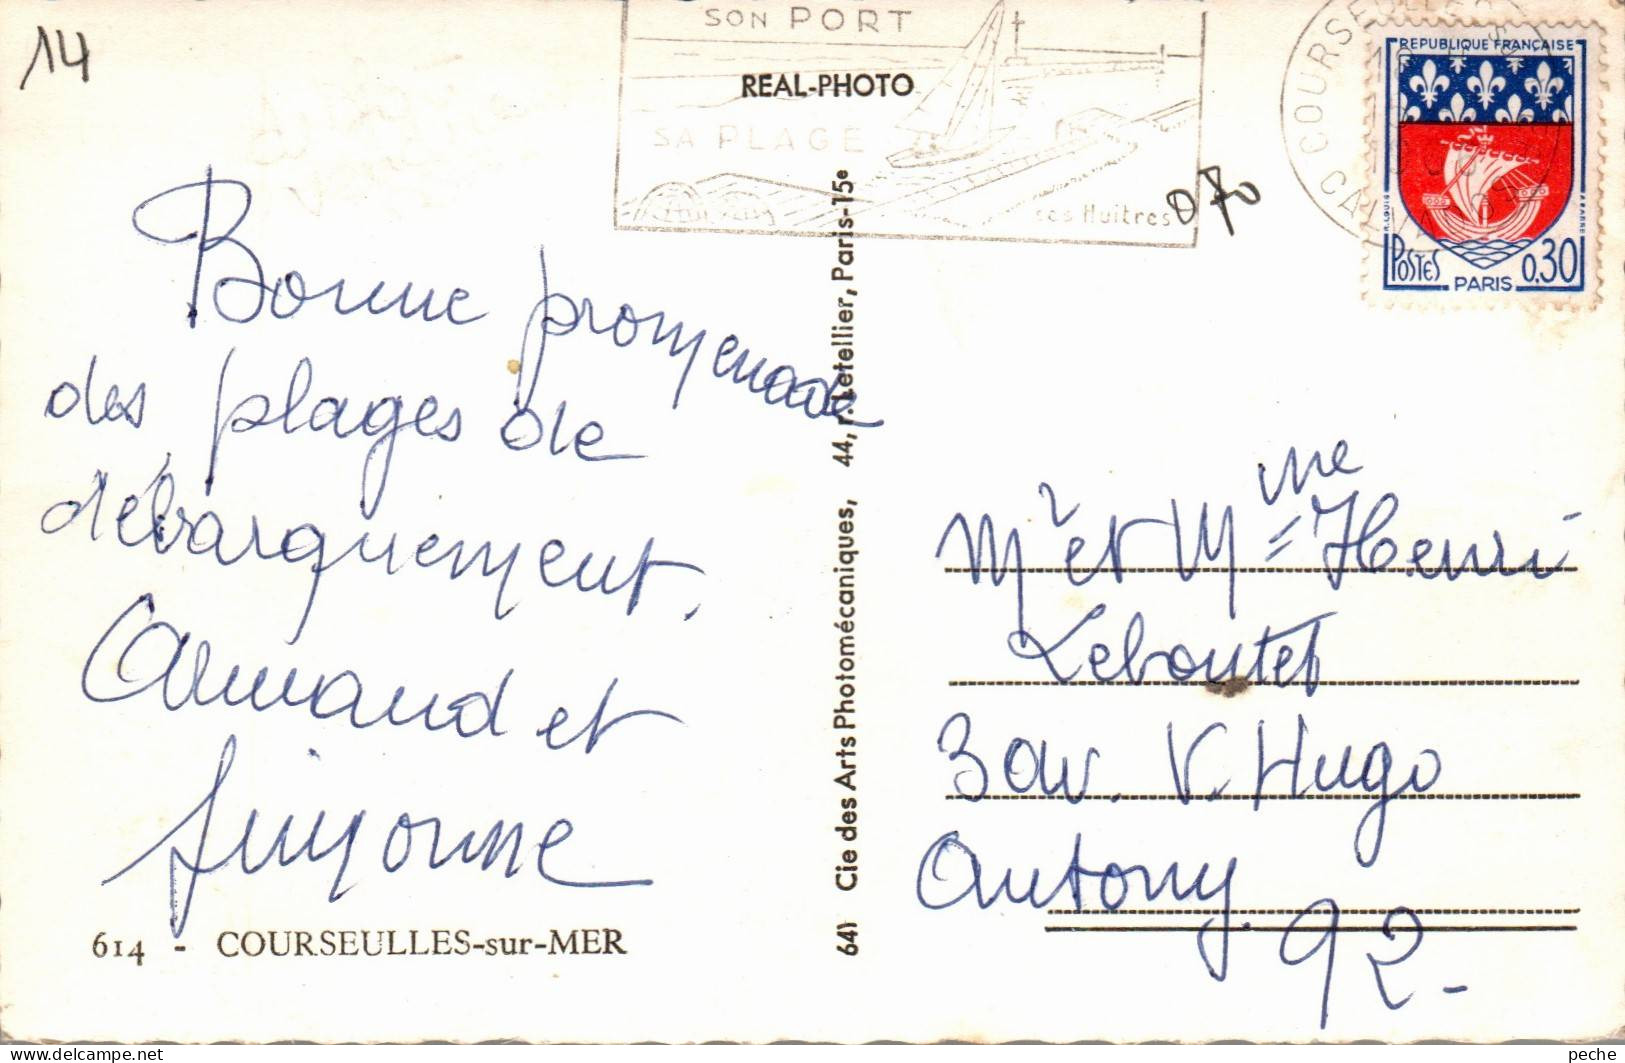 14
SON PORT
SA PLAGE
ses Huitres
REAL-PHOTO
070
COURSEULLES
CALVADOS
REPUBLIQUE FRANÇAISE
POSTES
PARIS
0,30
Bonne promenade
des plages de
débarquement.
Armand et
614 - COURSEULLES-sur-MER
64) Cie des Arts Photomécaniques, 44, r. Letellier, Paris-15e
Mr et Mme Henri
Leboutet
3 av. V. Hugo
Antony.
92-
peche
© www.delcampe.net